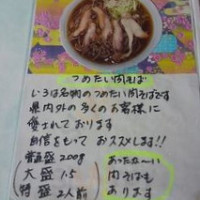 つめたい肉そば
いろは名物のつめたい肉そばです
県内外の多くのお客様に
優されております
自信をもっておススメします!!
普通盛 200g
大盛 1.5
特盛 2人前
あったか〜い
肉そばも
あります